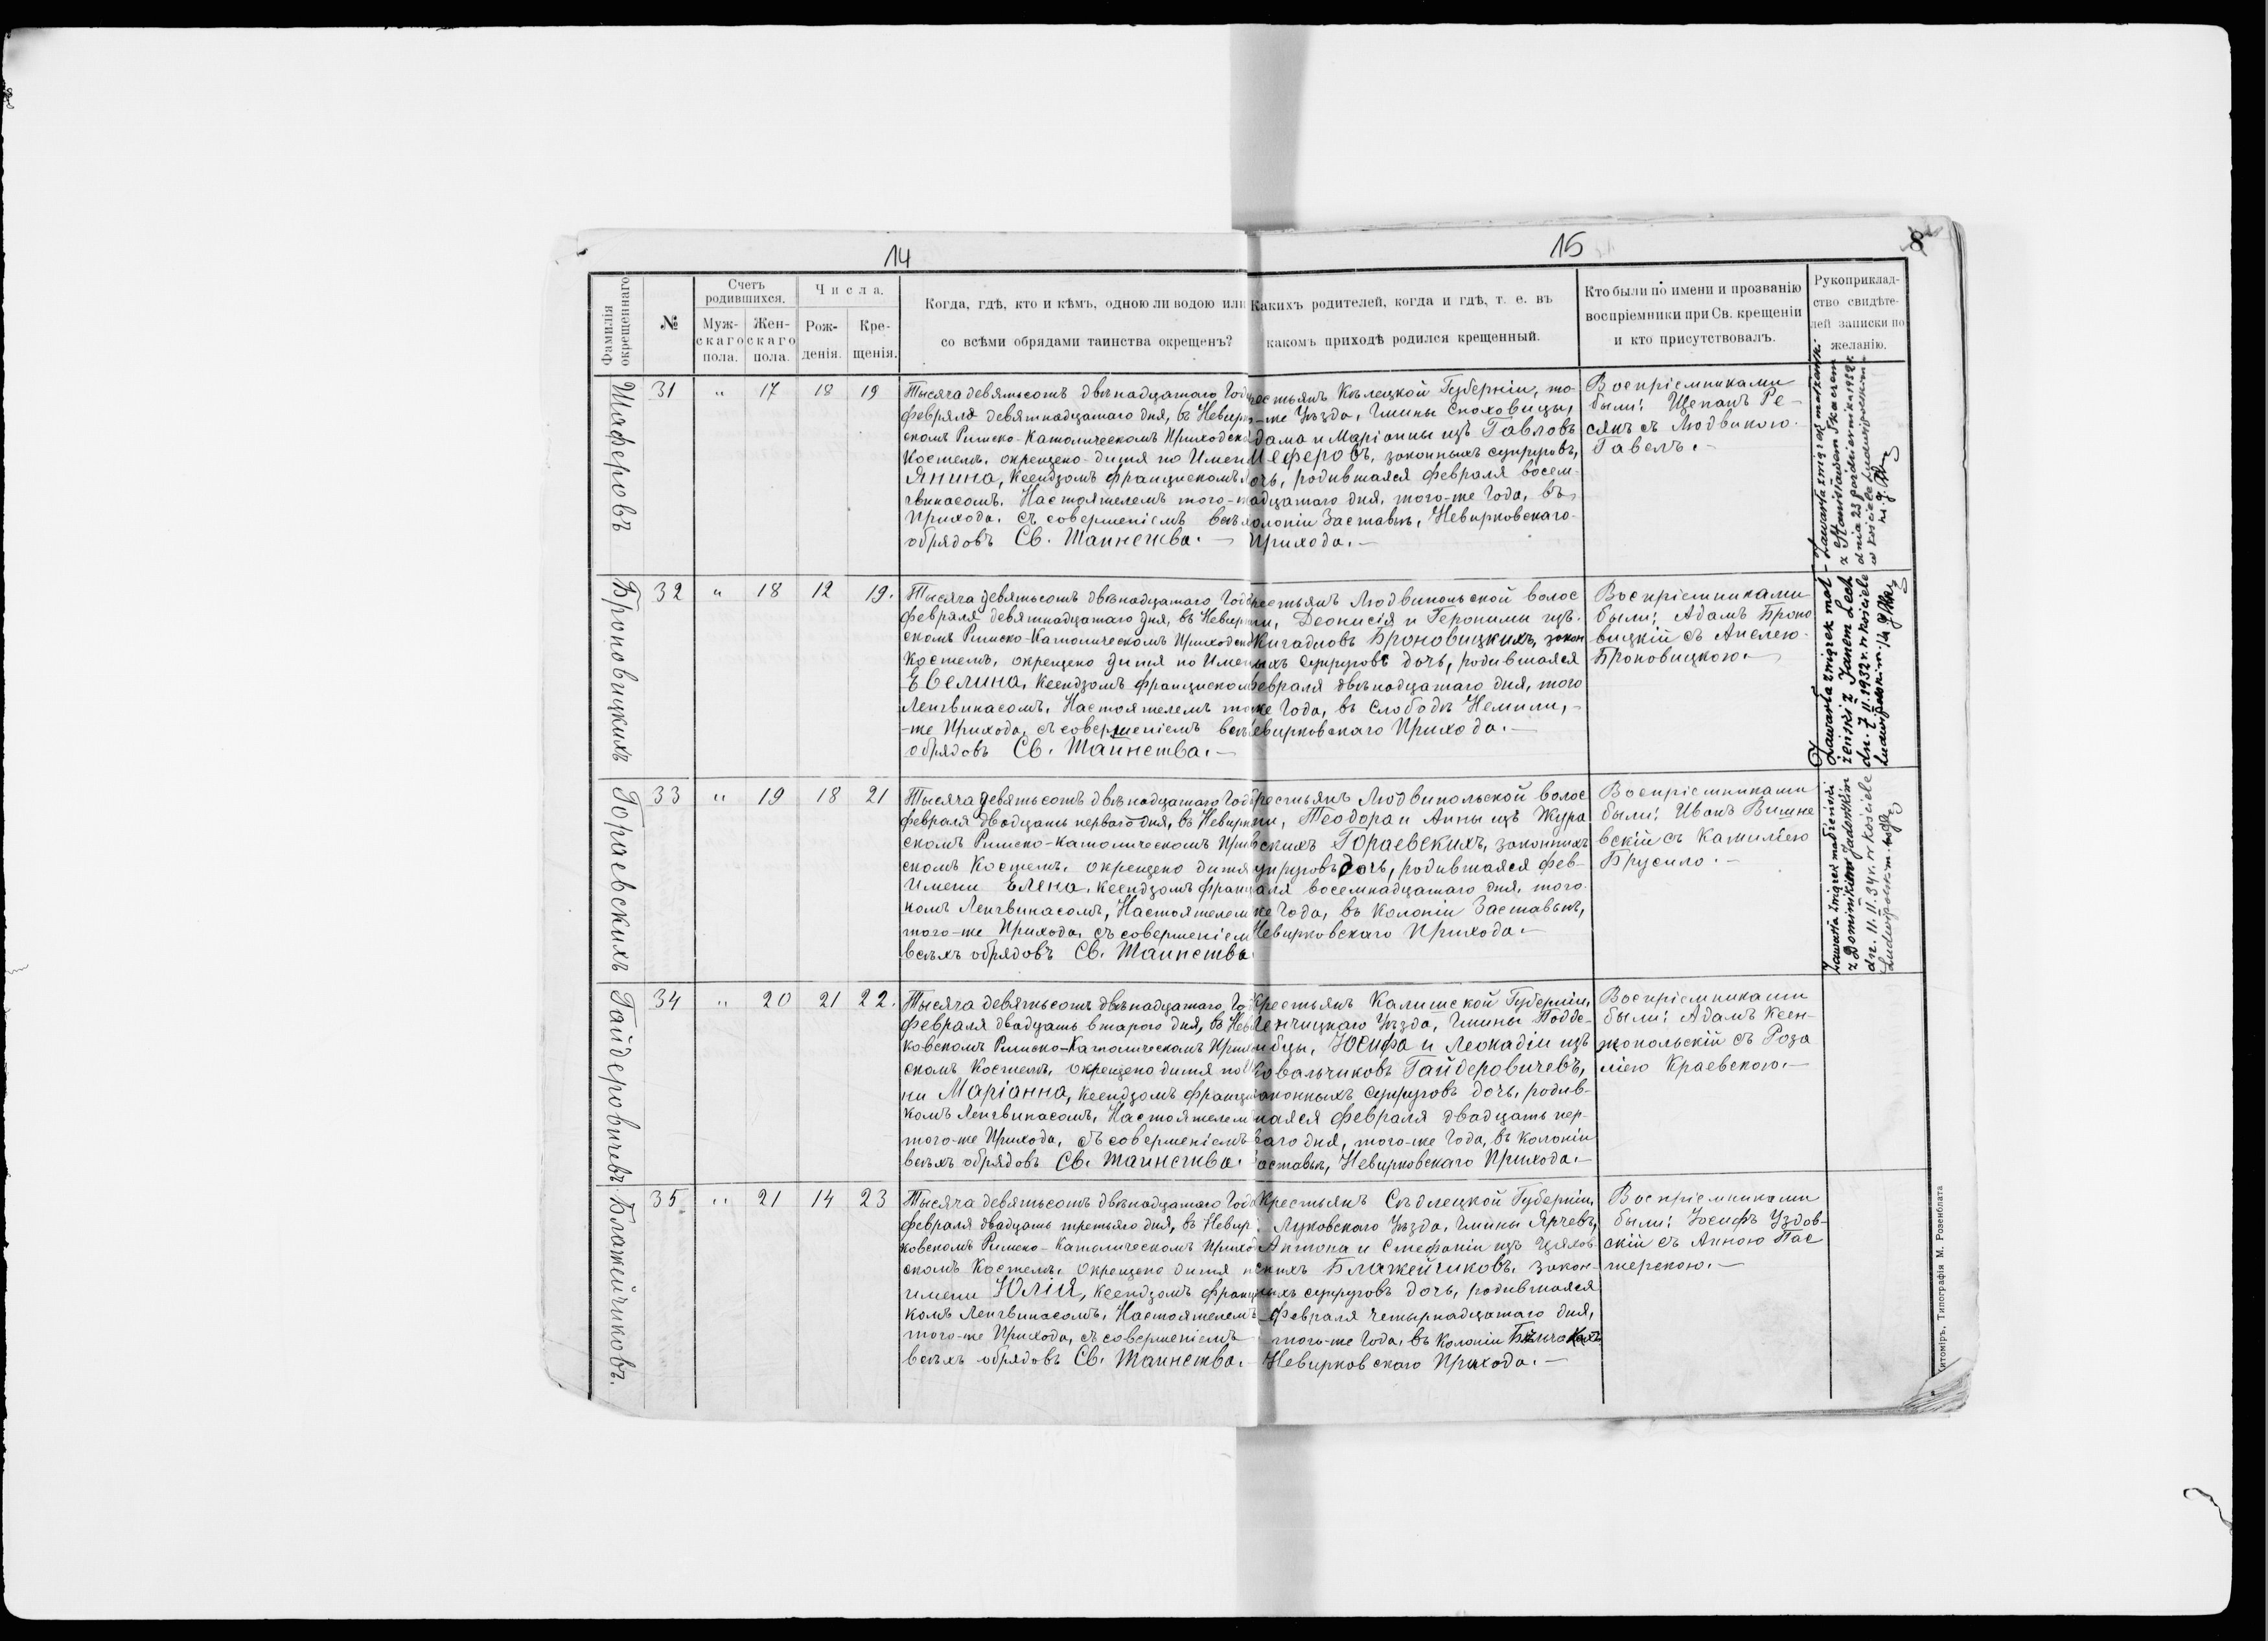 14
15
8
Фамилія окрещеннаго
№
Счетъ родившихся.
Муж-
скаго
пола.
Жен-
скаго
пола.
Числа.
Рож-
денія.
Кре-
щенія.
Когда, гдѣ, кто и кѣмъ, одною ли водою или
со всѣми обрядами таинства окрещенъ?
Какихъ родителей, когда и гдѣ, т. е. въ
какомъ приходѣ родился крещенный.
Кто были по имени и прозванію
воспріемники при Св. крещеніи
и кто присутствовалъ.
Рукоприклад-
ство свидѣте-
лей записки по
желанію.
Шаферовъ
31 " 17 18 19
Тысяча девятьсотъ двѣнадцатаго Года
февраля девятнадцатаго дня, въ Невирко
скомъ Римско-Католическомъ Приходско
Костелѣ, окрещено дитя по Имени
Янина, Ксендзомъ Францискомъ Ле
гвинасомъ, Настоятелемъ того-
Прихода, съ совершеніемъ всѣх
обрядовъ Св. Таинства. —
рестьянъ Кѣлецкой Губерніи, то
о-же Уѣзда, Гмины Споховицы,
дама и Маріанны изъ Гавловъ
Шеферовъ, законныхъ супруговъ,
очь, родившаяся февраля восем-
адцатаго дня, того-же Года, въ
олоніи Заставье, Невирковскаго
Прихода. —
Воспріемниками
были: Щепанъ Ре-
сякъ съ Людвикою
Гавелъ. —
Zawarła związek małżeński
z Stanisławem Tkaczem
dnia 23 października 1932 r.
w kościele Ludwipolskim
Броновицкихъ
32 " 18 12 19.
Тысяча девятьсотъ двѣнадцатаго Года
февраля девятнадцатаго дня, въ Невирко
скомъ Римско-Католическомъ Приходско
Костелѣ, окрещено дитя по Имени
Эвелина, Ксендзомъ Францискомъ
Ленгвинасомъ, Настоятелемъ то
-же Прихода, съ совершеніемъ всѣх
обрядовъ Св. Таинства. —
рестьянъ Людвипольской волос
ти, Деонисія и Геронимы изъ
Кигадловъ Броновицкихъ, закон
ныхъ супруговъ дочь, родившаяся
февраля двѣнадцатаго дня, того
же Года, въ Слободѣ Немили,
евирковскаго Прихода. —
Воспріемниками
были: Адамъ Броно
вицкій съ Анелею
Броновицкою. —
Zawarła związek mał-
żeński z Janem Lech
dn. 7.II.1932 r. w kościele
Гораевскихъ
33 " 19 18 21
Тысяча девятьсотъ двѣнадцатаго Года
февраля двадцать перваго дня, въ Невирко
скомъ Римско-Католическомъ Прихо
скомъ Костелѣ, окрещено дитя
Имени Елена, Ксендзомъ Франц
комъ Ленгвинасомъ, Настоятелем
того-же Прихода, съ совершеніем
всѣхъ обрядовъ Св. Таинства
рестьянъ Людвипольской волос
ти, Теодора и Анны изъ Жура
вскихъ Гораевскихъ, законныхъ
упруговъ дочь, родившаяся фев-
аля восемнадцатаго дня, того
же Года, въ Колоніи Заставье,
Невирковскаго Прихода. —
Воспріемниками
были: Иванъ Вишне
вскій съ Камиліею
Брусило. —
Zawarła związek małżeński
z Dominikiem
dn. 11.II.34 r. w kościele
Ludwipolskim
Гайдеровичевъ
34 " 20 21 22.
Тысяча девятьсотъ двѣнадцатаго Го
февраля двадцать втораго дня, въ Невир
ковскомъ Римско-Католическомъ Прихо
скомъ Костелѣ, окрещено дитя по И
ни Маріанна, Ксендзомъ Францис
комъ Ленгвинасомъ, Настоятелем
того-же Прихода, съ совершеніемъ
всѣхъ обрядовъ Св. Таинства.
Крестьянъ Калишской Губерніи,
Ленчицкаго Уѣзда, Гмины Подде-
мбцы, Юсифа и Леокадіи изъ
Ковальчиковъ Гайдеровичевъ,
законныхъ супруговъ дочь, родив-
шаяся февраля двадцать пер-
ваго дня, того-же Года, въ Колоніи
аставье, Невирковскаго Прихода. —
Воспріемниками
были: Адамъ Ксен-
жопольскій съ Роза
ліею Краевскою. —
Блажейчиковъ.
35 " 21 14 23
Тысяча девятьсотъ двѣнадцатаго Года
февраля двадцать третьяго дня, въ Невир
ковскомъ Римско-Католическомъ Приход
скомъ Костелѣ, окрещено дитя п
имени Юлія, Ксендзомъ Франц
комъ Ленгвинасомъ, Настоятелемъ
того-же Прихода, съ совершеніемъ
всѣхъ обрядовъ Св. Таинства.
Крестьянъ Сѣдлецкой Губерніи,
Луковскаго Уѣзда, Гмины Ярчевъ,
Антона и Стефаніи изъ Цѣхов
скихъ Блажейчиковъ, закон-
ныхъ супруговъ дочь, родившаяся
февраля четырнадцатаго дня,
того-же Года, въ Колоніи
Невирковскаго Прихода. —
Воспріемниками
были: Юсифъ Уздов-
скій съ Анною Пас
терскою. —
Житоміръ, Типографія М. Розенблата